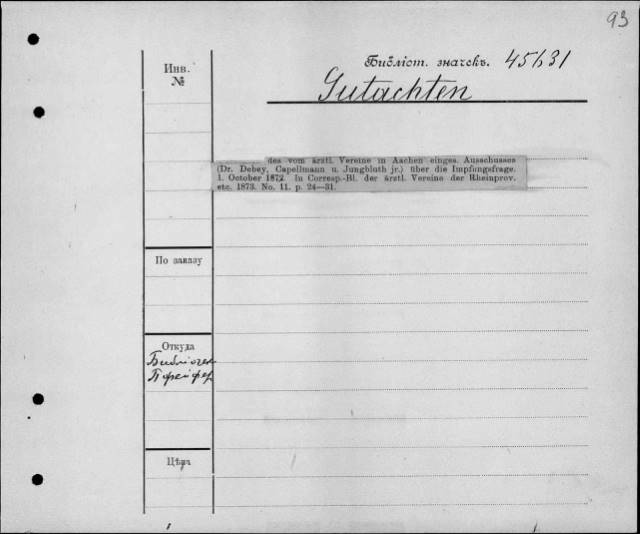 93
Библіот. значекъ. 45631
Gutachten
Инв.
№
des vom ärztl. Vereine in Aachen einges. Ausschusses
(Dr. Debey, Capellmann u. Jungbluth jr.) über die Impfungsfrage.
1. October 1872. In Corresp.-Bl. der ärztl. Vereine der Rheinprov.
etc. 1873. No. 11. p. 24—31.
По заказу
Откуда
Библіотек
Пфейфер
Цѣна